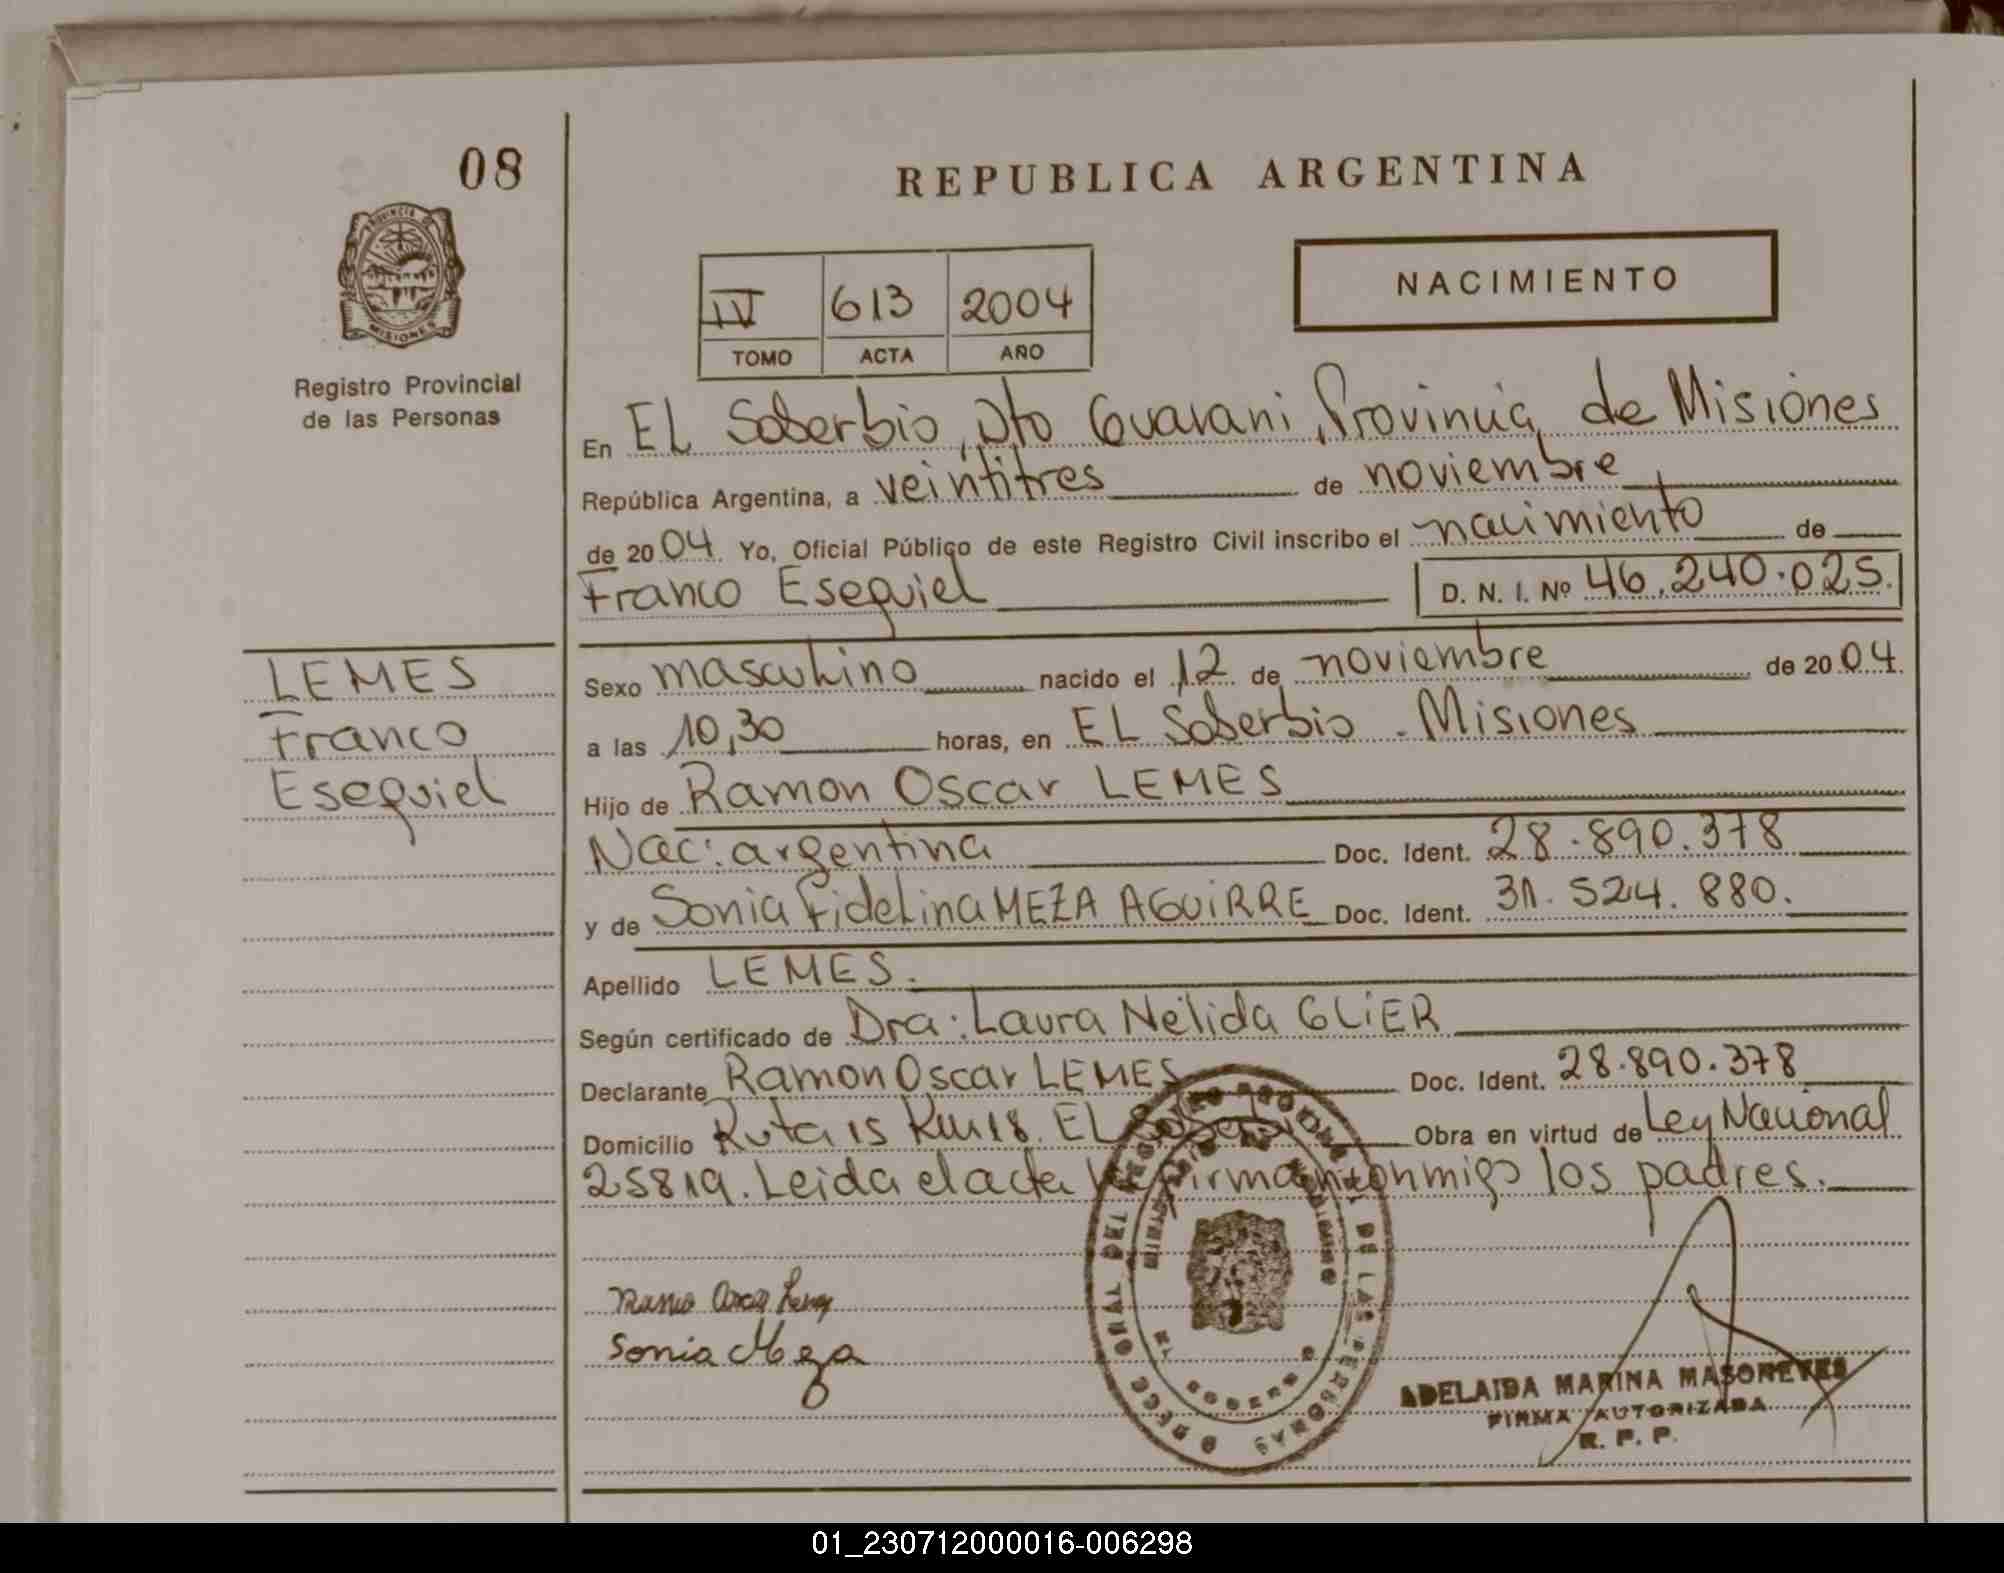 08
REPUBLICA ARGENTINA
PROVINCIA DE
MISIONES
Registro Provincial
de las Personas
IV 613 2004
TOMO ACTA AÑO
NACIMIENTO
En EL Soberbio, Dto Guarani, Provincia de Misiones
República Argentina, a veintitres de noviembre
de 2004. Yo, Oficial Público de este Registro Civil inscribo el nacimiento de
Franco Esequiel D. N. I. Nº 46.240.025.
LEMES
Franco
Esequiel
Sexo masculino nacido el 12 de noviembre de 2004.
a las 10,30 horas, en EL Soberbio - Misiones
Hijo de Ramon Oscar LEMES
Nac: argentina Doc. Ident. 28.890.378
y de Sonia Fidelina MEZA AGUiRRE Doc. Ident. 31.524.880.
Apellido LEMES.
Según certificado de Dra: Laura Nélida GLiER
Declarante Ramon Oscar LEMES Doc. Ident. 28.890.378
Domicilio Ruta 15 Km 18. EL Soberbio Obra en virtud de Ley Nacional
25819. Leida el acta la firman conmigo los padres.
Oscar
Sonia Meza
DEL REGISTRO PROVINCIAL DE LAS PERSONAS
ADELAIDA MARINA
FIRMA AUTORIZADA
R. P. P.
01_230712000016-006298